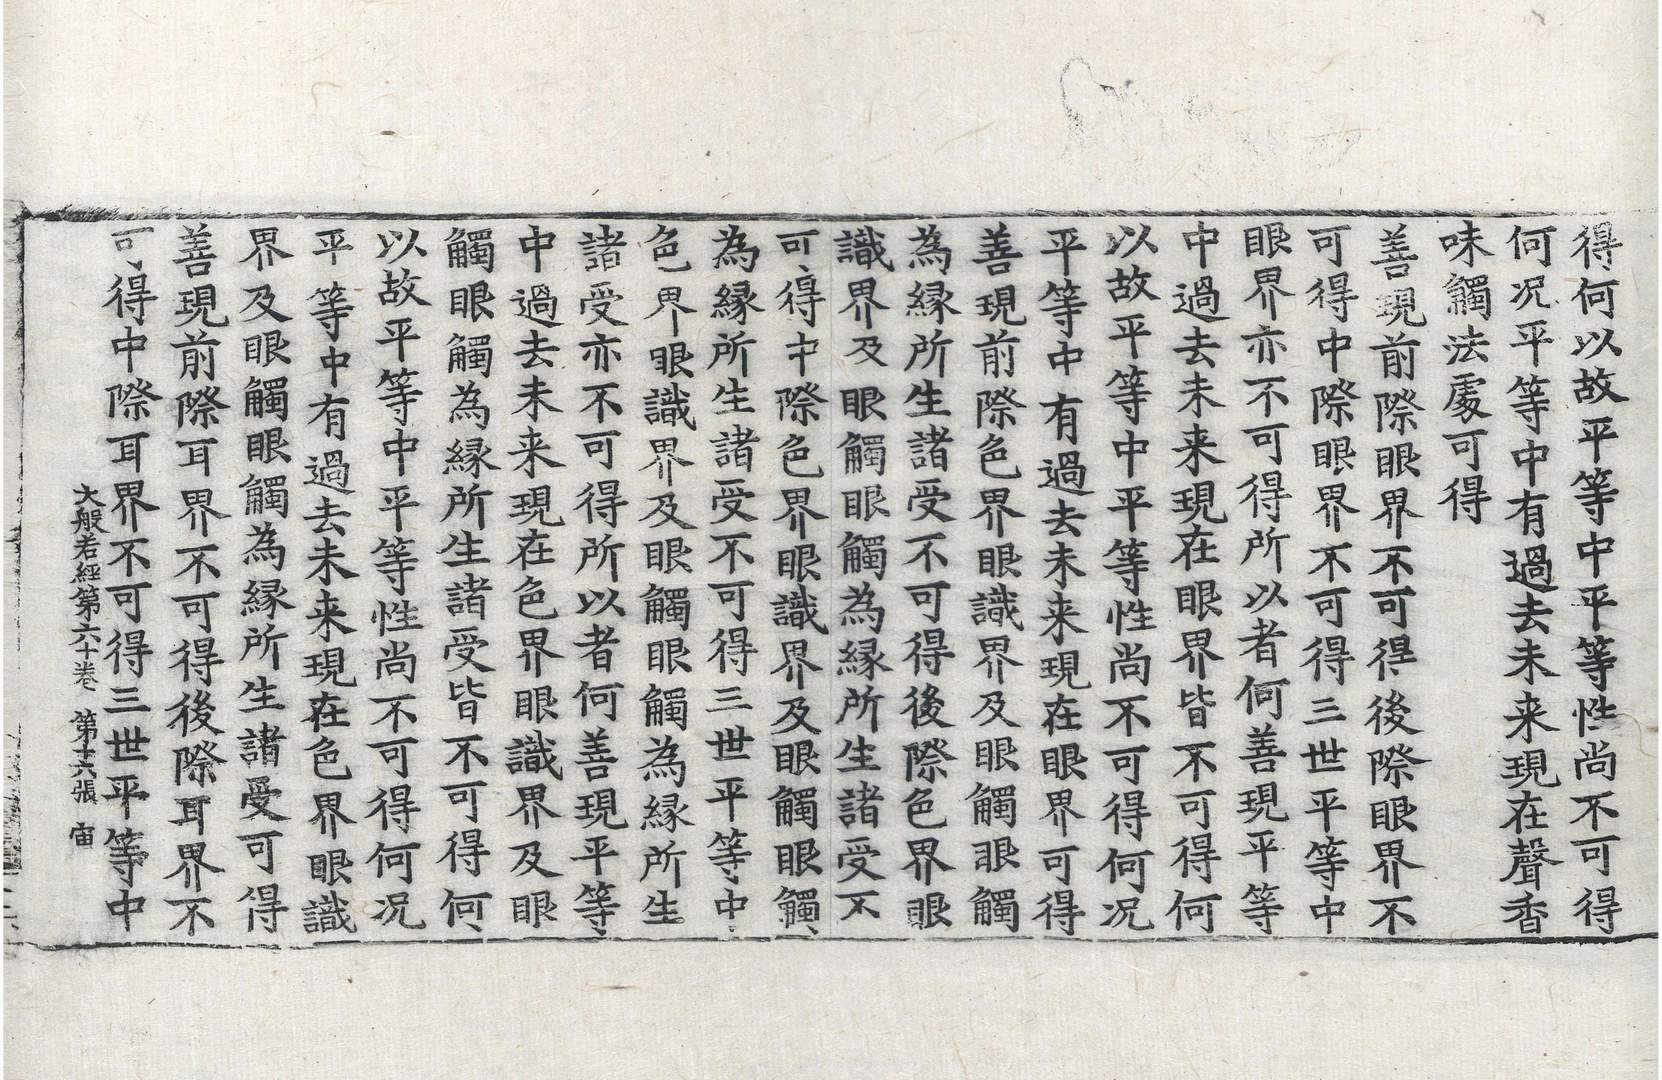 得何以故平等中平等性尚不可得
何况平等中有過去未来現在聲香
味觸法處可得
善現前際眼界不可得後際眼界不
可得中際眼界不可得三世平等中
眼界亦不可得所以者何善現平等
中過去未来現在眼界皆不可得何
以故平等中平等性尚不可得何况
平等中有過去未来現在眼界可得
善現前際色界眼識界及眼觸眼觸
為縁所生諸受不可得後際色界眼
識界及眼觸眼觸為縁所生諸受不
可得中際色界眼識界及眼觸眼觸
為縁所生諸受不可得三世平等中
色界眼識界及眼觸眼觸為縁所生
諸受亦不可得所以者何善現平等
中過去未来現在色界眼識界及眼
觸眼觸為縁所生諸受皆不可得何
以故平等中平等性尚不可得何况
平等中有過去未来現在色界眼識
界及眼觸眼觸為縁所生諸受可得
善現前際耳界不可得後際耳界不
可得中際耳界不可得三世平等中
大般若經第六十卷 第十六張 宙